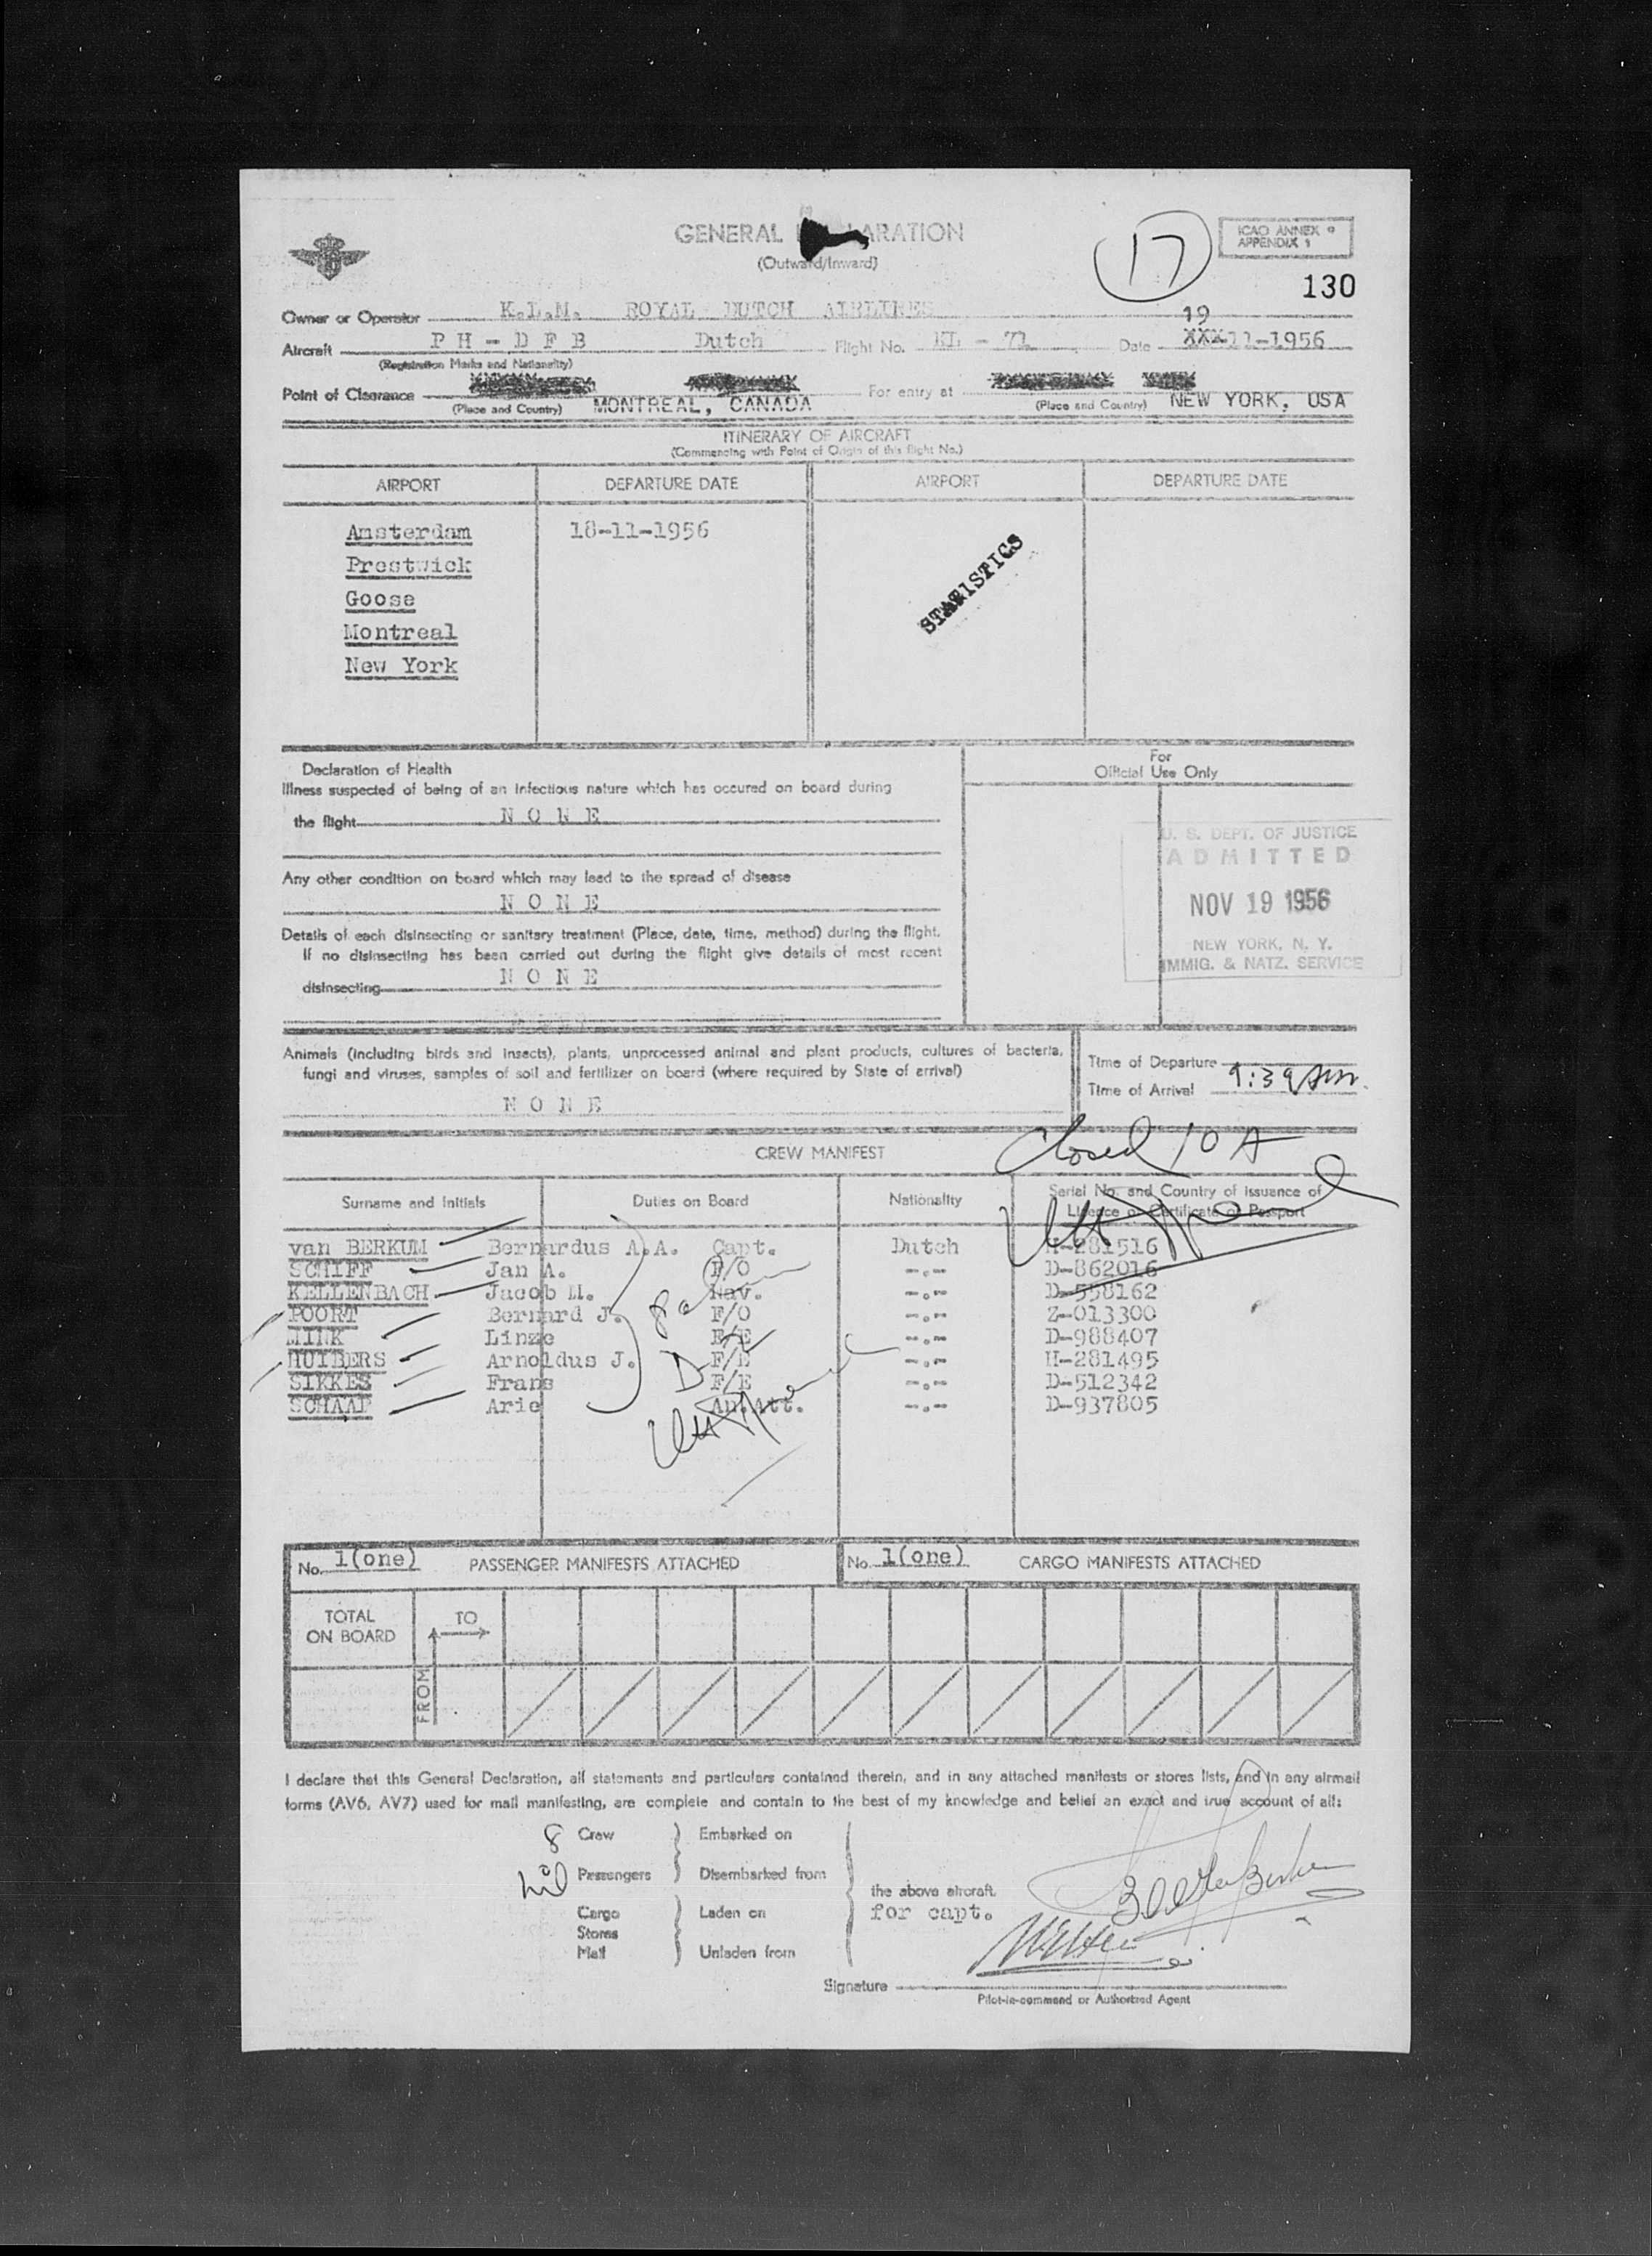 GENERAL DECLARATION
(Outward/Inward)
17
ICAO ANNEX 9
APPENDIX 1
130
Owner or Operator K.L.M. ROYAL DUTCH AIRLINES
19
Aircraft PH-DFB Dutch Flight No. KL - 71 Date XXX-11-1956
(Registration Marks and Nationality)
Point of Clearance MONTREAL, CANADA For entry at NEW YORK, USA
(Place and Country) (Place and Country)
ITINERARY OF AIRCRAFT
(Commencing with Point of Origin of this flight No.)
AIRPORT DEPARTURE DATE AIRPORT DEPARTURE DATE
Amsterdam 18-11-1956
Prestwick
Goose
Montreal
New York
STATISTICS
Declaration of Health
Illness suspected of being of an infectious nature which has occured on board during
the flight NONE
Any other condition on board which may lead to the spread of disease
NONE
Details of each disinsecting or sanitary treatment (Place, date, time, method) during the flight.
If no disinsecting has been carried out during the flight give details of most recent
disinsecting NONE
For
Official Use Only
U. S. DEPT. OF JUSTICE
ADMITTED
NOV 19 1956
NEW YORK, N. Y.
IMMIG. & NATZ. SERVICE
Animals (including birds and insects), plants, unprocessed animal and plant products, cultures of bacteria,
fungi and viruses, samples of soil and fertilizer on board (where required by State of arrival)
NONE
Time of Departure
Time of Arrival 9:39 AM.
Closed 10 A
CREW MANIFEST
Surname and Initials Duties on Board Nationality Serial No. and Country of issuance of
Licence or Certificate or Passport
van BERKUM Bernardus A.A. Capt. Dutch H-281516
SCHIFF Jan A. F/O -.- D-862016
KELLENBACH Jacob M. Nav. -.- D-558162
POORT Bernard J. F/O -.- Z-013300
MINK Linze F/E -.- D-988407
HUYBERS Arnoldus J. F/E -.- H-281495
SIKKES Frans F/E -.- D-512342
SCHAAP Arie An.Att. -.- D-937805
No. 1(one) PASSENGER MANIFESTS ATTACHED No. 1(one) CARGO MANIFESTS ATTACHED
TOTAL
ON BOARD
TO
FROM
I declare that this General Declaration, all statements and particulars contained therein, and in any attached manifests or stores lists, and in any airmail
forms (AV6, AV7) used for mail manifesting, are complete and contain to the best of my knowledge and belief an exact and true account of all:
8 Crew Embarked on
nil Passengers Disembarked from
the above aircraft.
Cargo Laden on for capt.
Stores
Mail Unladen from
Signature
Pilot-in-command or Authorized Agent